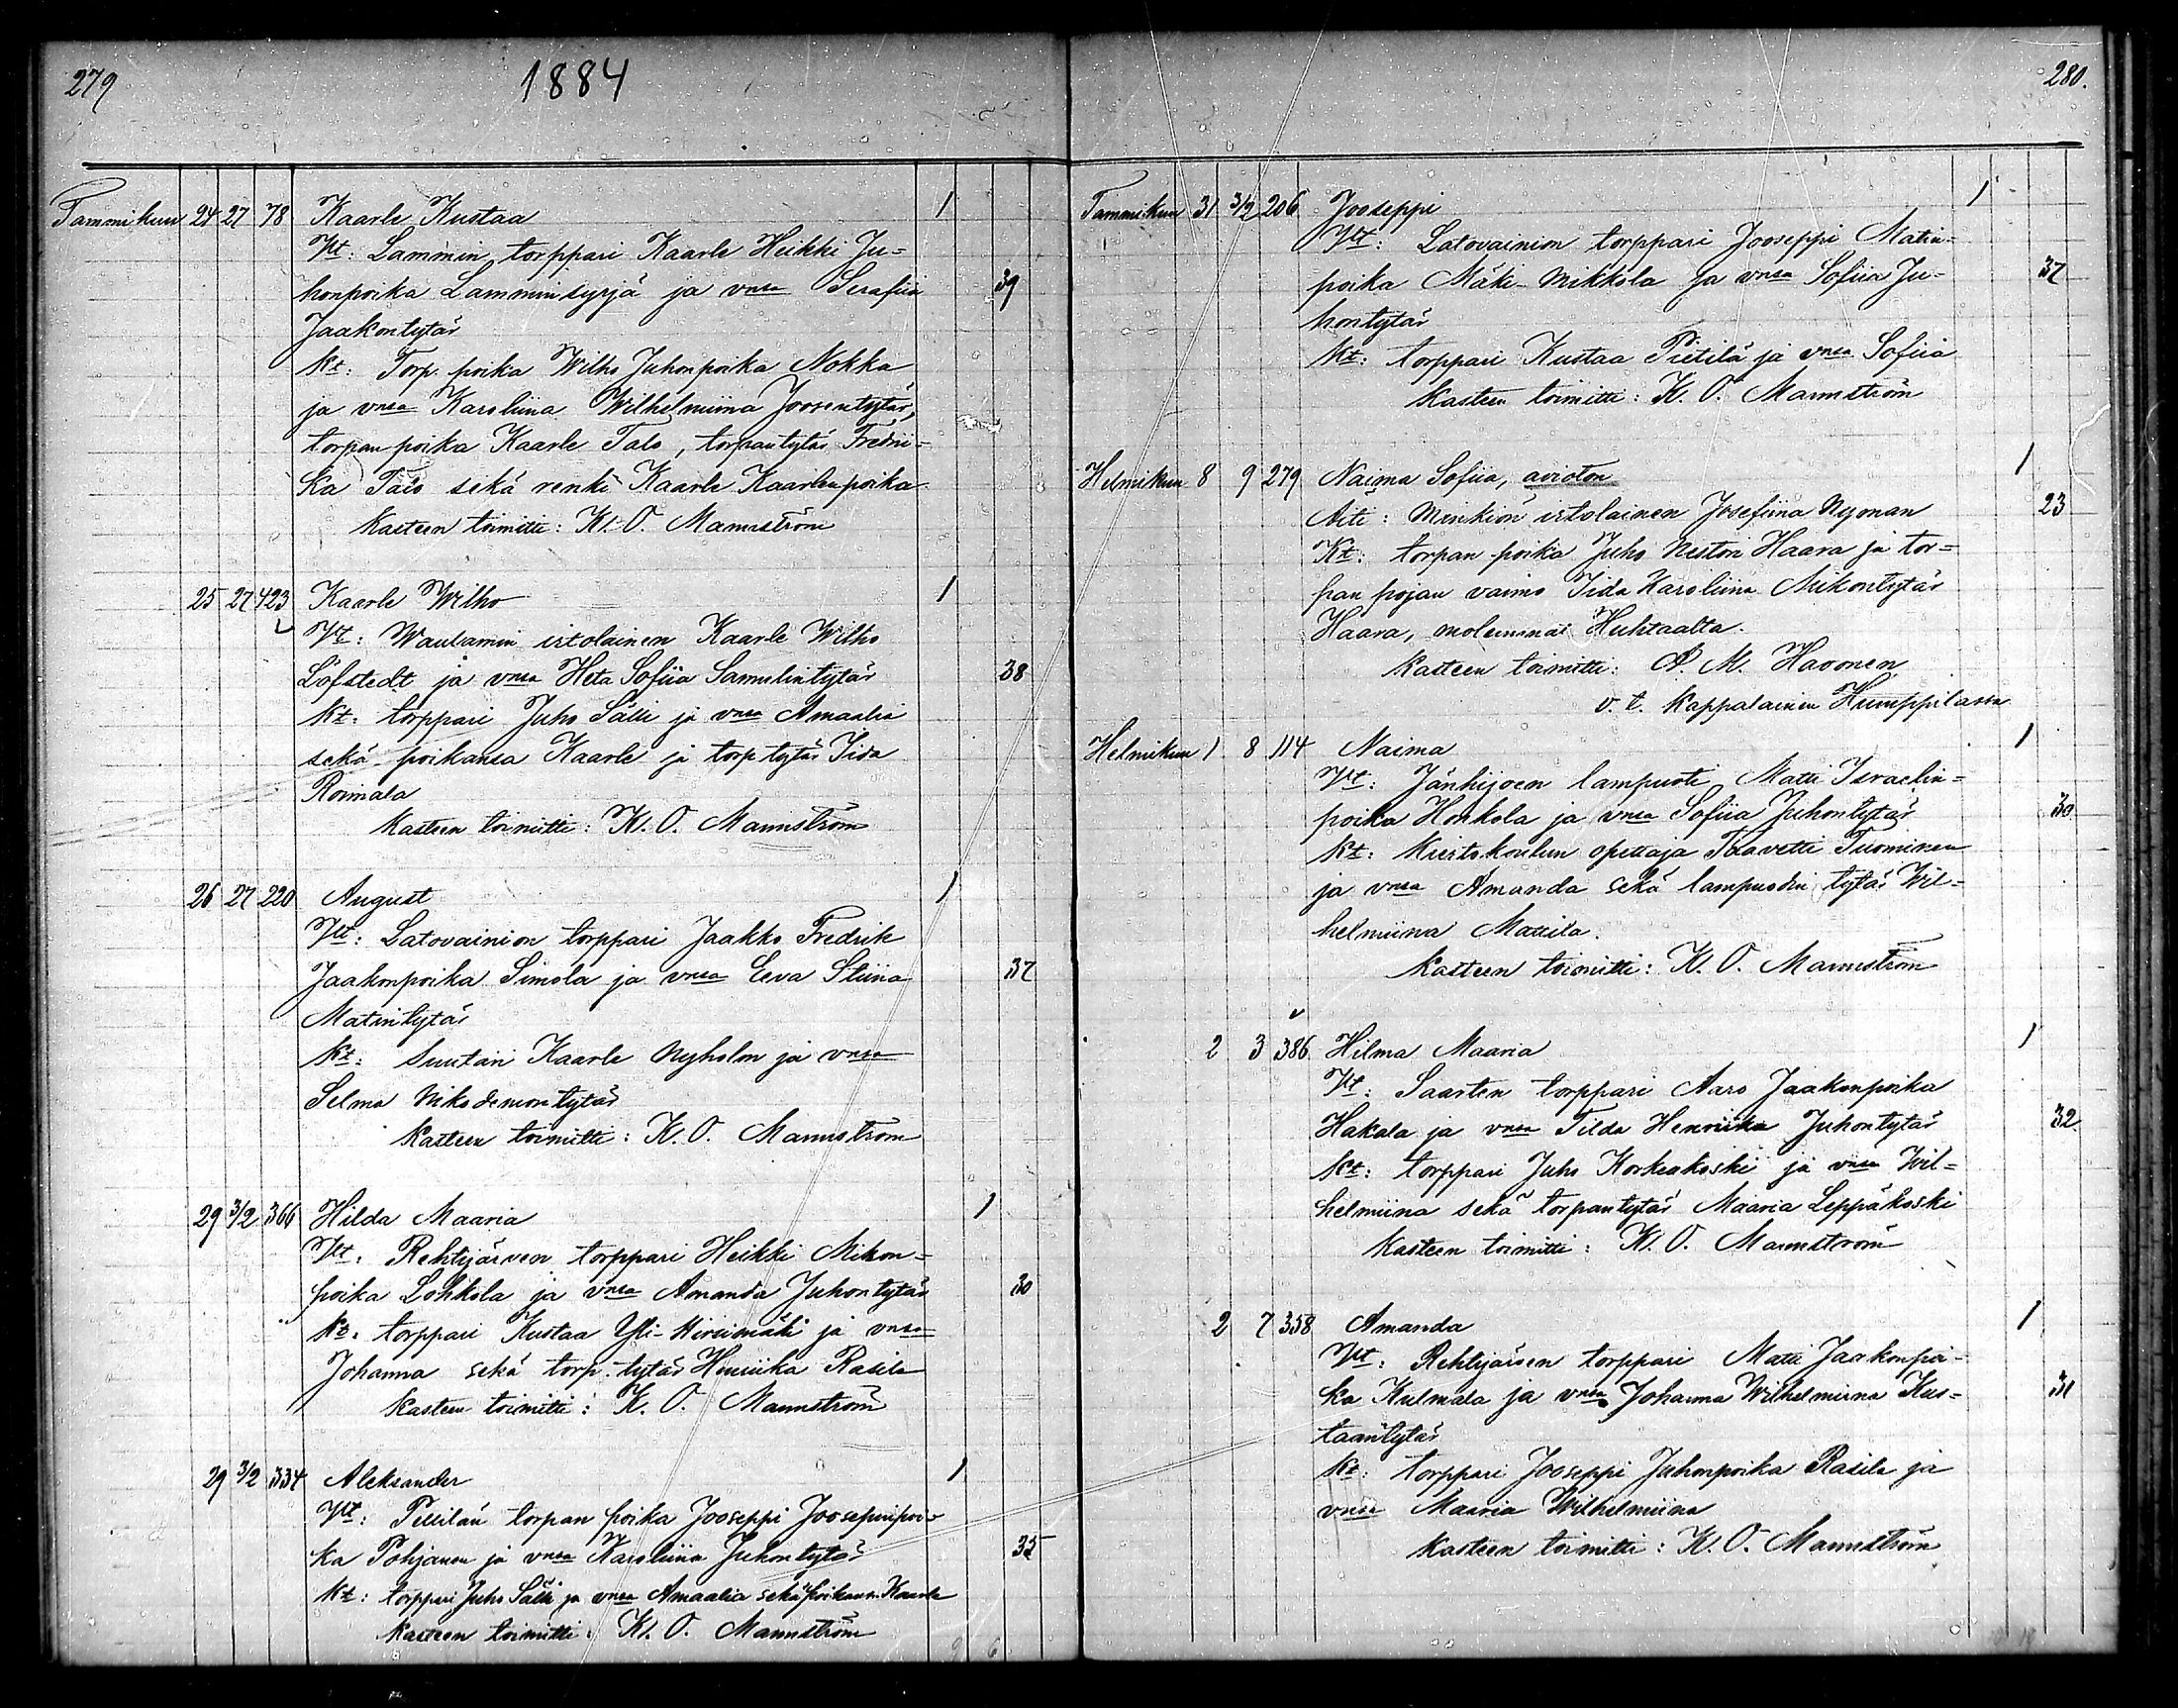 279
1884
Tammikuu 24 27 78 Kaarle Kustaa 1
Vt: Lammin torppari Kaarle Heikki Ju=
honpoika Lamminsyrjä ja vnsa Serafiia 39
Jaakontytär
Kt: Torp. poika Wilho Juhonpoika Nokka
ja vnsa Karoliina Wilhelmiina Joosentytär,
torpanpoika Kaarle Talo, torpantytär Fredrii=
ka Talo sekä renki Kaarle Kaarlenpoika
Kasteen toimitti: K. O. Mannström
25 27 423 Kaarle Wilho 1
Vt: irtolainen Kaarle Wilho
Löfstedt ja vnsa Heta Sofiia Samulintytär 38
Kt: torppari Juho Sälli ja vnsa Amaalia
sekä poikansa Kaarle ja torp tytär Iida
Roimala
Kasteen toimitti: K. O. Mannström
26 27 220 August 1
Vt: Latovainion torppari Jaakko Fredrik
Jaakonpoika Simola ja vnsa Eeva Stiina 37
Matintytär
Kt: Suutari Kaarle Nyholm ja vnsa
Selma Nikodemontytär
Kasteen toimitti: K. O. Mannström
29 3/2 366 Hilda Maaria 1
Vt: Rehtijärven torppari Heikki Mikon=
poika Lohkola ja vnsa Amanda Juhontytär 30
Kt: torppari Kustaa Yli-Hirsimäki ja vnsa
Johanna sekä torp. tytär Henriika Rasila
Kasteen toimitti: K. O. Mannström
29 3/2 334 Aleksander 1
Vt: torpan poika Jooseppi Joosepinpoi=
ka Pohjanen ja vnsa Karoliina Juhontytär 35
Kt: torppari Juho Sälli ja vnsa Amaalia sekä poikansa Kaarle
Kasteen toimitti: K. O. Mannström
280.
Tammikuu 31 3/2 206 Jooseppi 1
Vt: Latovainion torppari Jooseppi Matin=
poika Mäki-Mikkola ja vnsa Sofiia Ju= 37
hontytär
Kt: torppari Kustaa Pietilä ja vnsa Sofiia
Kasteen toimitti: K. O. Mannström
Helmikuu 8 9 279 Naima Sofiia, avioton 1
Äiti: Minkiön irtolainen Josefiina Nyman 23
Kt: torpan poika Juho Nestori Haara ja tor=
pan pojan vaimo Iida Karoliina Mikontytär
Haara, molemmat Huhtaalta.
Kasteen toimitti: A. M. Havonen
v. t. Kappalainen Humppilassa
Helmikuu 1 8 114 Naima 1
Vt: Jänhijoen lampuoti Matti Israelin=
poika Honkola ja vnsa Sofiia Juhontytär 30
Kt: Kiertokoulun opettaja Taavetti Tuominen
ja vnsa Amanda sekä lampuodin tytär Wil=
helmiina Mattila.
Kasteen toimitti: K. O. Mannström
2 3 386 Hilma Maaria 1
Vt: Saarten torppari Aaro Jaakonpoika
Hakala ja vnsa Tilda Henriika Juhontytär 32
Kt: torppari Juho Korkeakoski ja vnsa Wil=
helmiina sekä torpantytär Maaria Leppäkoski
Kasteen toimitti: K. O. Mannström
2 7 358 Amanda 1
Vt: Rehtijärven torppari Matti Jaakonpoi=
ka Kulmala ja vnsa Johanna Wilhelmiina Kus= 31
taantytär
Kt: torppari Jooseppi Juhonpoika Rasila ja
vnsa Maaria Wilhelmiina
Kasteen toimitti: K. O. Mannström